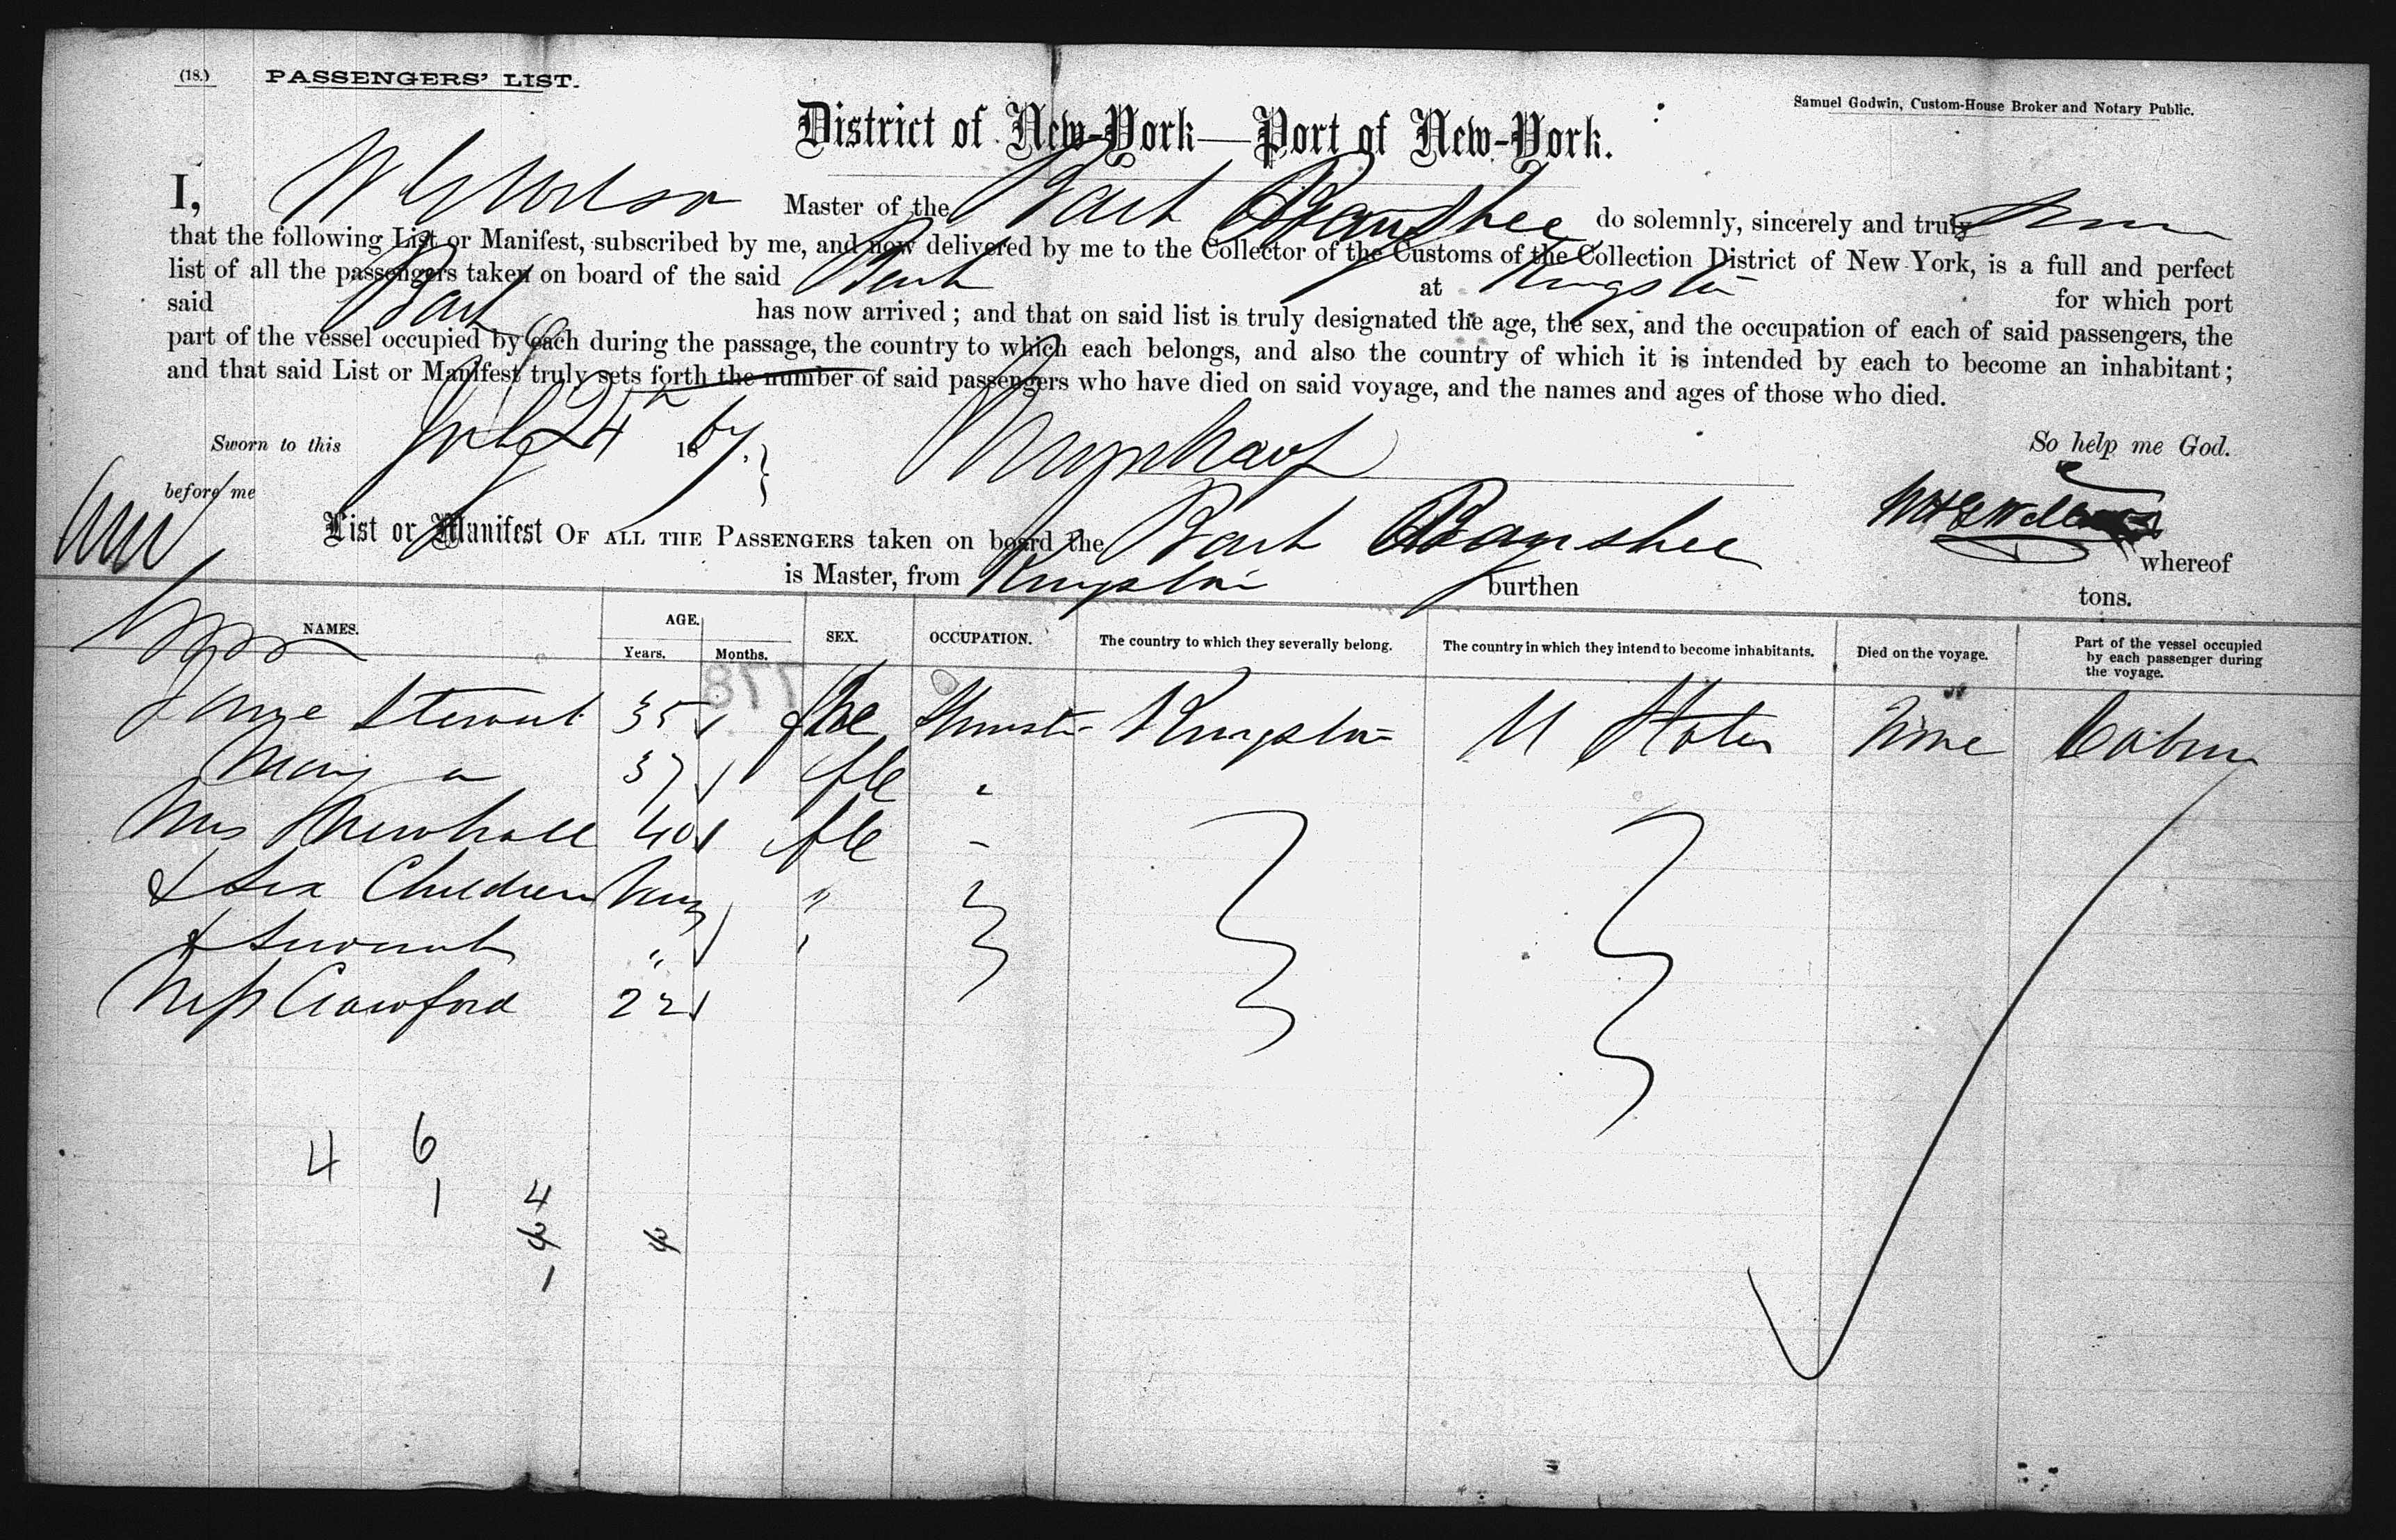 (18.) PASSENGERS' LIST.
Samuel Godwin, Custom-House Broker and Notary Public.
District of New-York—Port of New-York.
I, Master of the Bark Banshee do solemnly, sincerely and truly
that the following List or Manifest, subscribed by me, and now delivered by me to the Collector of the Customs of the Collection District of New York, is a full and perfect
list of all the passengers taken on board of the said Bark at Kingston for which port
said Bark has now arrived; and that on said list is truly designated the age, the sex, and the occupation of each of said passengers, the
part of the vessel occupied by each during the passage, the country to which each belongs, and also the country of which it is intended by each to become an inhabitant;
and that said List or Manifest truly sets forth the number of said passengers who have died on said voyage, and the names and ages of those who died.
Sworn to this July 24 1867. So help me God.
before me
List or Manifest OF ALL THE PASSENGERS taken on board the Bark Banshee whereof
is Master, from Kingston burthen tons.
NAMES. AGE. Years. Months. SEX. OCCUPATION. The country to which they severally belong. The country in which they intend to become inhabitants. Died on the voyage. Part of the vessel occupied by each passenger during the voyage.
877
35 Kingston U States None Cabin
Mary a 37 fle "
Mrs Newhall 40 fle "
& Six Children "
& Servant " "
Miss Crawford 22
4 6
1 4
3 3
1